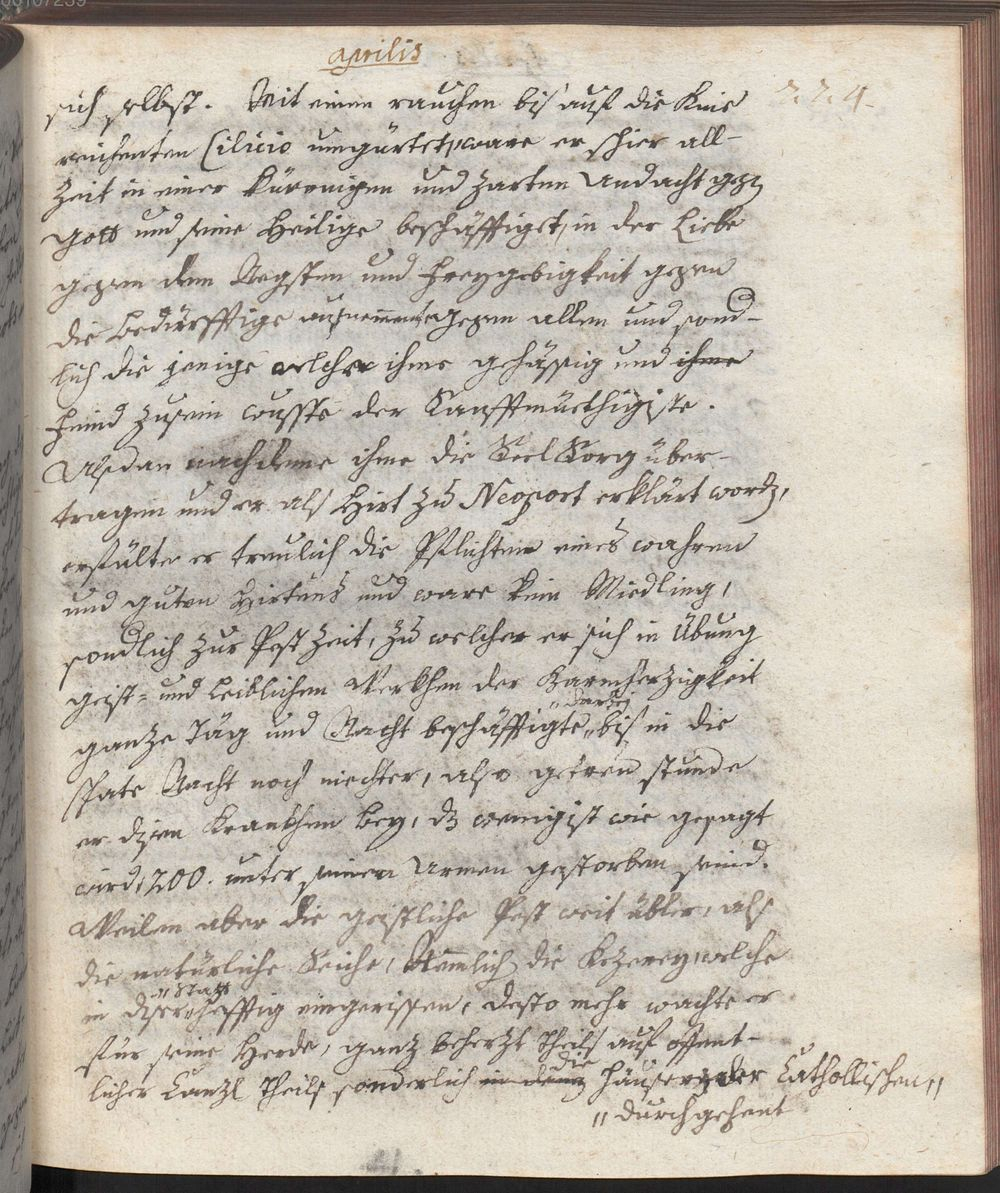 00107239
aprilis
224.
sich selbst. Mit einem rauchen biß auf die Knie
reichenten Cilicio umgürtet, ware er schier all-
Zeit in einer und zarten Andacht gegen
Gott und seine Heilige beschäfftiget, in der Liebe
gegen dem Negsten und Freygebigkeit gegen
die Bedürfftige gegen allen und sond-
lich die jenige welche ihme gehässig und ihme
Feind zusein wusste der Sanfftmüethigiste.
Alsdan nachdeme ihme die Seel Sorg über-
tragen und er als Hirt zu Neoport erklärt worden,
erfülte er treulich die Pflichten eines wahren
und guten Hirtens und ware kein Miedling,
sondlich zur Pest Zeit, zu welcher er sich in Übung
geist- und leiblichen Werkhen der Barmherzigkeit
ganze Täg und Nacht beschäfftigte, biß in die
spate Nacht noch niechter, also getreu stunde
er disen Krankhen bey, dz wenigist wie gesagt
wird, 200. unter seinen Armen gestorben seind.
Weilen aber die geistliche Pest weit übler, als
die natürliche Seiche, Nemmlich die Kezerey, welche
in diser Statt hefftig eingerissen, desto mehr wachte er
für seine Herde, ganz beherzt Theils auf offent-
licher Canzl Theils sonderlich in denen die Häuser der Catholischen
durchgehent